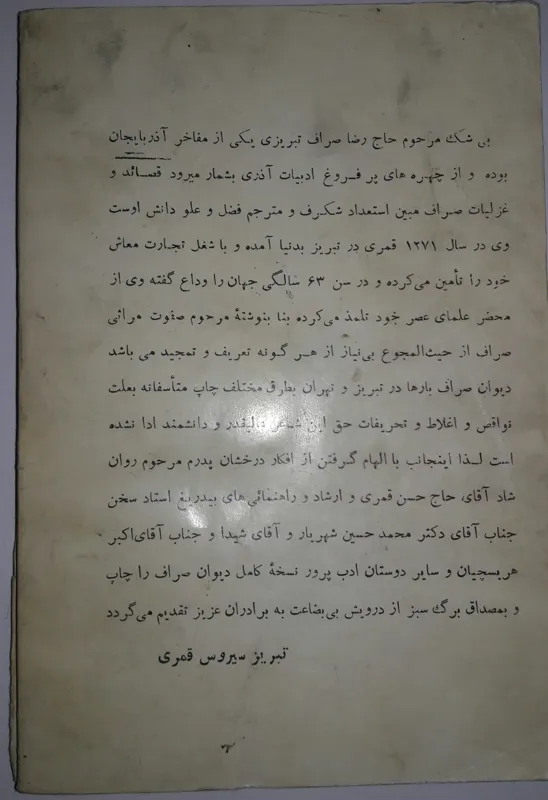 بی شک مرحوم حاج رضا صراف تبریزی یکی از مفاخر آذربایجان
بوده و از چهره های پر فروغ ادبیات آذری بشمار میرود قصائد و
غزلیات صراف مبین استعداد شگرف و مترجم فضل و علو دانش اوست
وی در سال ۱۲۷۱ قمری در تبریز بدنیا آمده و با شغل تجارت معاش
خود را تأمین می‌کرده و در سن ۶۳ سالگی جهان را وداع گفته وی از
محضر علمای عصر خود تلمذ می‌کرده بنا بنوشتهٔ مرحوم صفوت مراثی
صراف از حیث‌المجوع بی‌نیاز از هر گونه تعریف و تمجید می باشد
دیوان صراف بارها در تبریز و تهران بطرق مختلف چاپ متأسفانه بعلت
نواقص و اغلاط و تحریفات حق این شاعر عالیقدر و دانشمند ادا نشده
است لذا اینجانب با الهام گرفتن از افکار درخشان پدرم مرحوم روان
شاد آقای حاج حسن قمری و ارشاد و راهنمائی های بیدریغ استاد سخن
جناب آقای دکتر محمد حسین شهریار و آقای شیدا و جناب آقای‌اکبر
هریسچیان و سایر دوستان ادب پرور نسخهٔ کامل دیوان صراف را چاپ
و بمصداق برگ سبز از درویش بی‌بضاعت به برادران عزیز تقدیم می‌گردد
تبریز سیروس قمری